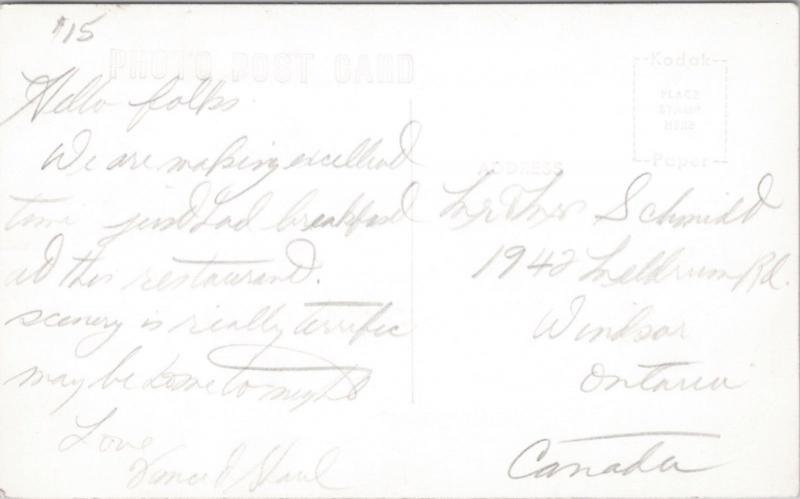 $15
PHOTO POST CARD
Hello folks
We are making excellent
time just had breakfast
at this restaurant.
scenery is really terrific
may be home tonight
Love
Kodak
PLACE
STAMP
HERE
Paper
ADDRESS
Mr & Mrs Schmidt
1942 Meldrum Rd.
Windsor
Ontario
Canada